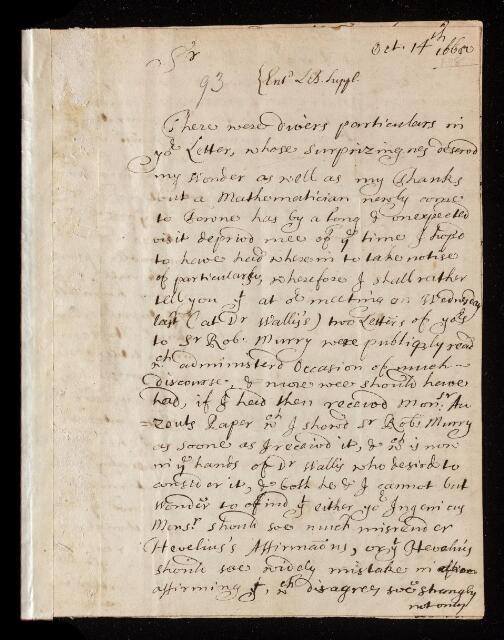 Oct. 14th 1665
Sr
93 {Entd LB. Suppl.
There were divers particulars in
yor Letter, whose surprizingnes deservd
my wonder as well as my Thanks
but a Mathematician newly come
to Towne has by a long & unexpected
visit deprivd mee of ye time I hop'd
to have had wherein to take notice
of particularly, wherefore I shall rather
tell you yt at or meeting on Wednesday
last (at Dr Wallis's) two Letters of yors
to Sr Rob. Murry were publiqly read
wch administerd Occasion of much
discourse, & more wee should have
had, if I had then receivd Monsr Au
=zouts Paper wch I showd Sr Rob: Murry
as soone as I receivd it, & wch is now
in ye hands of Dr Wallis who desird to
consider it, & both he & I cannot but
wonder to find yt either yor Ingenious
Monsr should soe much misrender
Hevelius's Affirmations, or yt Hevelius
should soe widely mistake in
affirming yt, wch disagrees soe strangly
not only